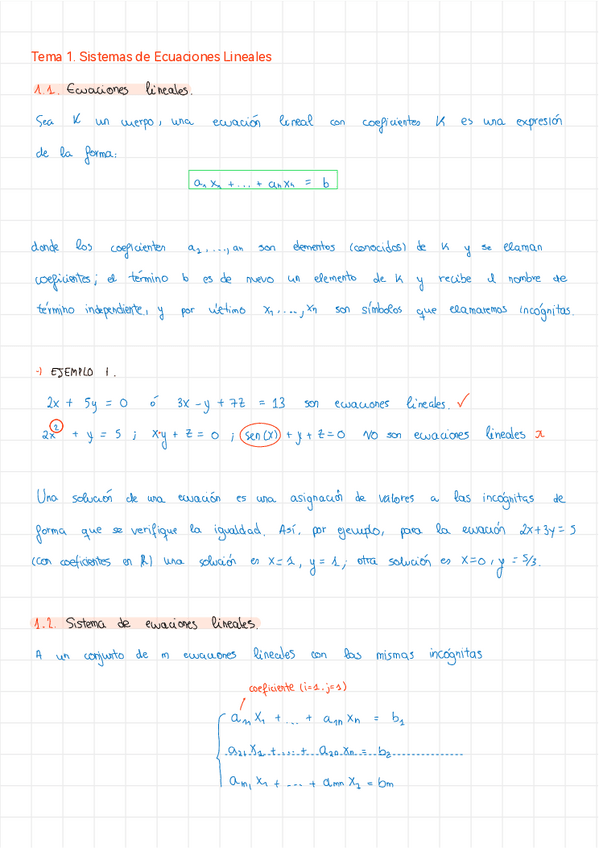 Tema 1. Sistemas de Ecuaciones Lineales
1.1. Ecuaciones lineales.
Sea K un cuerpo, una ecuación lineal con coeficientes K es una expresión
de la forma:
a₁ x₁ + ... + aₙ xₙ = b
donde los coeficientes a₂, ..., aₙ son elementos (conocidos) de K y se llaman
coeficientes; el término b es de nuevo un elemento de K y recibe el nombre de
término independiente, y por último x₁, ..., xₙ son símbolos que llamaremos incógnitas.
-) EJEMPLO 1.
2x + 5y = 0 ó 3x - y + 7z = 13 son ecuaciones lineales. ✓
2x² + y = 5 ; x·y + z = 0 ; sen(x) + y + z = 0 NO son ecuaciones lineales x
Una solución de una ecuación es una asignación de valores a las incógnitas de
forma que se verifique la igualdad. Así, por ejemplo, para la ecuación 2x+3y = 5
(con coeficientes en R) una solución es x=1, y = 1; otra solución es x=0, y = 5/3.
1.2. Sistema de ecuaciones lineales.
A un conjunto de m ecuaciones lineales con las mismas incógnitas
coeficiente (i=1, j=1)
a₁₁ x₁ + ... + a₁ₙ xₙ = b₁
a₂₁ x₁ + ... + a₂ₙ xₙ = b₂
aₘ₁ x₁ + ... + aₘₙ x₂ = bₘ